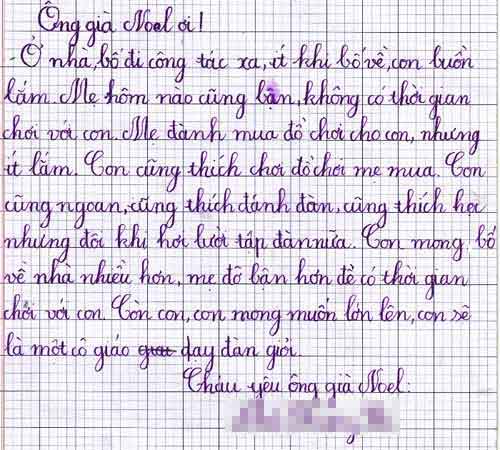 Ông già Noel ơi!
- Ở nhà, bố đi công tác xa, ít khi bố về, con buồn
lắm. Mẹ hôm nào cũng bận, không có thời gian
chơi với con. Mẹ đành mua đồ chơi cho con, nhưng
ít lắm. Con cũng thích chơi đồ chơi mẹ mua. Con
cũng ngoan, cũng thích đánh đàn, cũng thích học
nhưng đôi khi hơi lười tập đàn nữa. Con mong bố
về nhà nhiều hơn, mẹ đỡ bận hơn để có thời gian
chơi với con. Còn con, con mong muốn lớn lên, con sẽ
là một cô giáo giai dạy đàn giỏi.
Cháu yêu ông già Noel: